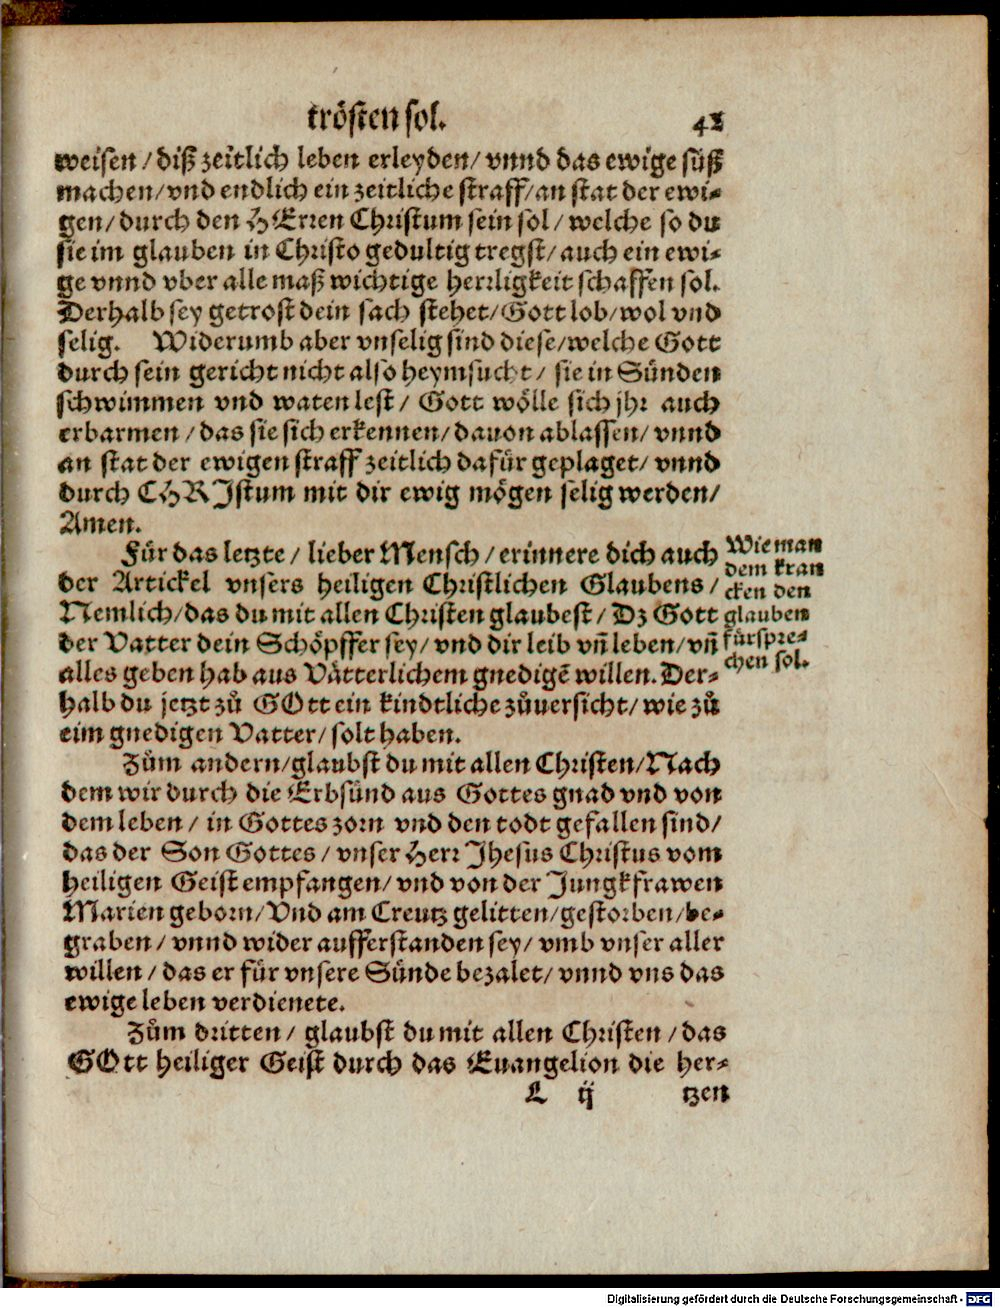 trösten sol. 42
weisen / diß zeitlich leben erleyden / vnnd das ewige süß
machen / vnd endlich ein zeitliche straff / an stat der ewi-
gen / durch den HErren Christum sein sol / welche so du
sie im glauben in Christo gedultig tregst / auch ein ewi-
ge vnnd vber alle maß wichtige herrligkeit schaffen sol.
Derhalb sey getrost dein sach stehet / Gott lob / wol vnd
selig. Widerumb aber vnselig sind diese / welche Gott
durch sein gericht nicht also heymsucht / sie in Sünden
schwimmen vnd waten lest / Gott wölle sich jhr auch
erbarmen / das sie sich erkennen / dauon ablassen / vnnd
an stat der ewigen straff zeitlich dafür geplaget / vnnd
durch CHRJstum mit dir ewig mögen selig werden /
Amen.
Für das letzte / lieber Mensch / erinnere dich auch
der Artickel vnsers heiligen Christlichen Glaubens /
Nemlich / das du mit allen Christen glaubest / Dz Gott
der Vatter dein Schöpffer sey / vnd dir leib vn̄ leben / vn̄
alles geben hab aus Vätterlichem gnedigē willen. Der-
halb du jetzt zů GOtt ein kindtliche zůuersicht / wie zů
eim gnedigen Vatter / solt haben.
Wie man
dem kran
cken den
glauben
fürspre-
chen sol.
Zům andern / glaubst du mit allen Christen / Nach
dem wir durch die Erbsünd aus Gottes gnad vnd von
dem leben / in Gottes zorn vnd den todt gefallen sind /
das der Son Gottes / vnser Herr Jhesus Christus vom
heiligen Geist empfangen / vnd von der Jungkfrawen
Marien geborn / Vnd am Creutz gelitten / gestorben / be-
graben / vnnd wider aufferstanden sey / vmb vnser aller
willen / das er für vnsere Sünde bezalet / vnnd vns das
ewige leben verdienete.
Zům dritten / glaubst du mit allen Christen / das
GOtt heiliger Geist durch das Euangelion die her-
L ij tzen
Digitalisierung gefördert durch die Deutsche Forschungsgemeinschaft - DFG